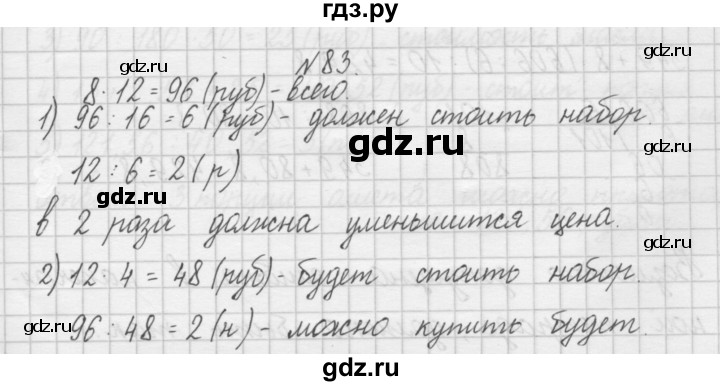 гдз.ру
№83.
8·12=96(руб)-всего.
1) 96:16=6(руб)-должен стоить набор.
gdz.ru
12:6=2(р)
в 2 раза должна уменьшится цена.
gdz.ru
2) 12:4=48(руб)-будет стоить набор.
96:48=2(н)-можно купить будет.
gdz.ru